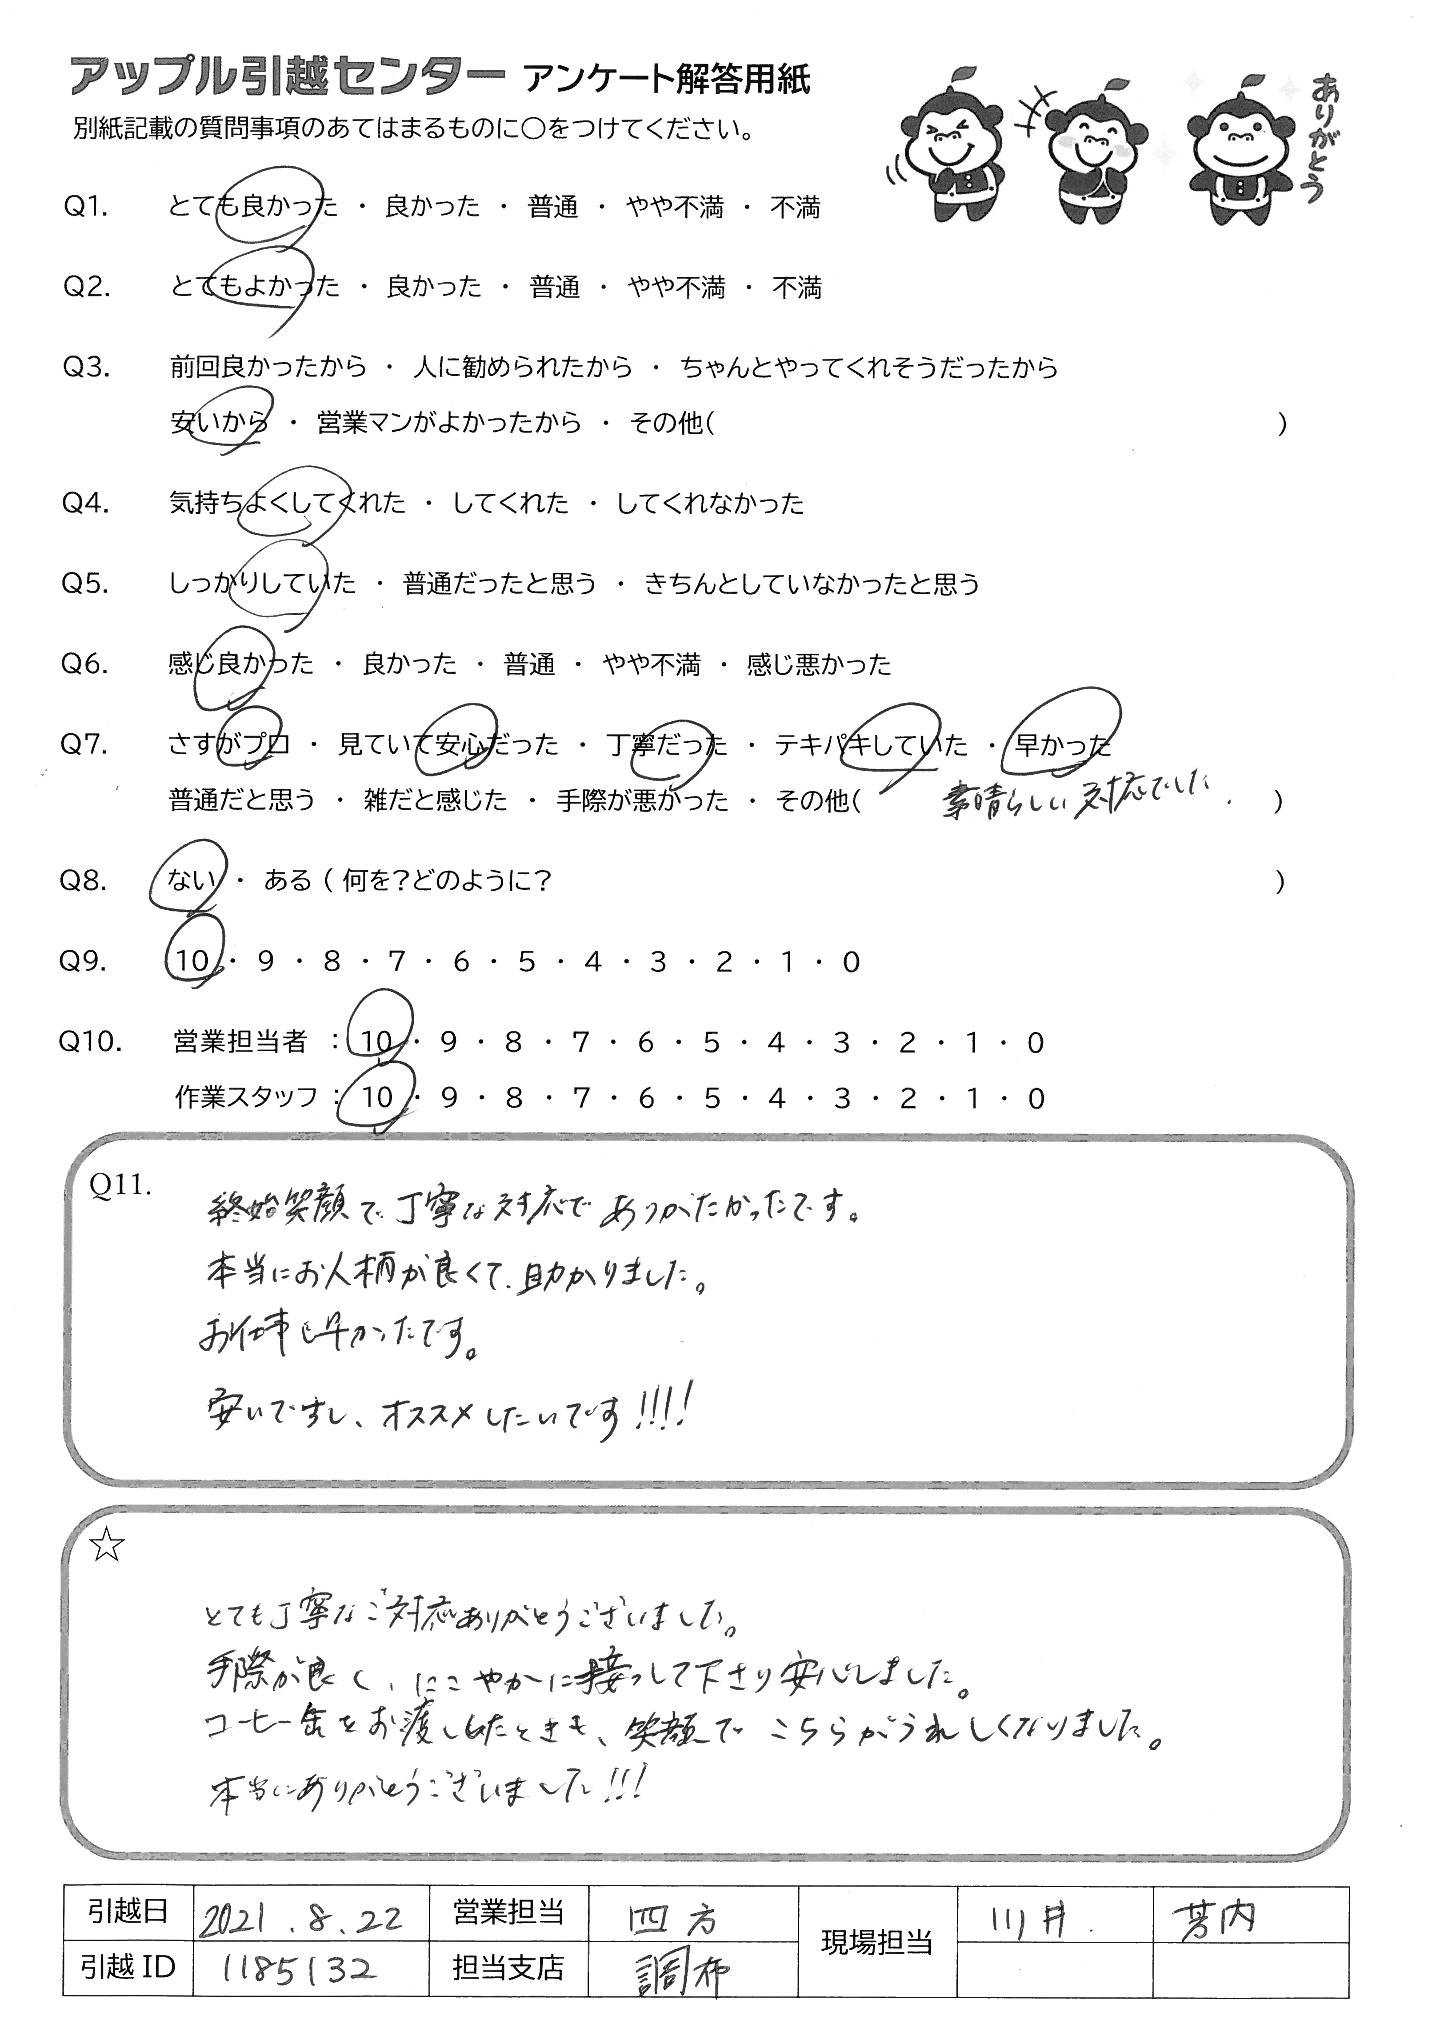 アップル引越センター アンケート解答用紙
ありがとう
別紙記載の質問事項のあてはまるものに○をつけてください。
Q1. とても良かった ・ 良かった ・ 普通 ・ やや不満 ・ 不満
Q2. とてもよかった ・ 良かった ・ 普通 ・ やや不満 ・ 不満
Q3. 前回良かったから ・ 人に勧められたから ・ ちゃんとやってくれそうだったから
安いから ・ 営業マンがよかったから ・ その他( )
Q4. 気持ちよくしてくれた ・ してくれた ・ してくれなかった
Q5. しっかりしていた ・ 普通だったと思う ・ きちんとしていなかったと思う
Q6. 感じ良かった ・ 良かった ・ 普通 ・ やや不満 ・ 感じ悪かった
Q7. さすがプロ ・ 見ていて安心だった ・ 丁寧だった ・ テキパキしていた ・ 早かった
普通だと思う ・ 雑だと感じた ・ 手際が悪かった ・ その他( 素晴らしい対応でした. )
Q8. ない ・ ある ( 何を?どのように? )
Q9. 10 ・ 9 ・ 8 ・ 7 ・ 6 ・ 5 ・ 4 ・ 3 ・ 2 ・ 1 ・ 0
Q10. 営業担当者 : 10 ・ 9 ・ 8 ・ 7 ・ 6 ・ 5 ・ 4 ・ 3 ・ 2 ・ 1 ・ 0
作業スタッフ : 10 ・ 9 ・ 8 ・ 7 ・ 6 ・ 5 ・ 4 ・ 3 ・ 2 ・ 1 ・ 0
Q11.
終始笑顔で、丁寧な対応でありがたかったです。
本当にお人柄が良くて、助かりました。
お仕事も早かったです。
安いですし、オススメしたいです!!!!
☆
とても丁寧なご対応ありがとうございました。
手際が良く、にこやかに接っして下さり安心しました。
コーヒー缶をお渡ししたときも、笑顔でこちらがうれしくなりました。
本当にありがとうございました!!!
引越日 2021.8.22 営業担当 四方 現場担当 川井. 芳内
引越ID 1185132 担当支店 調布